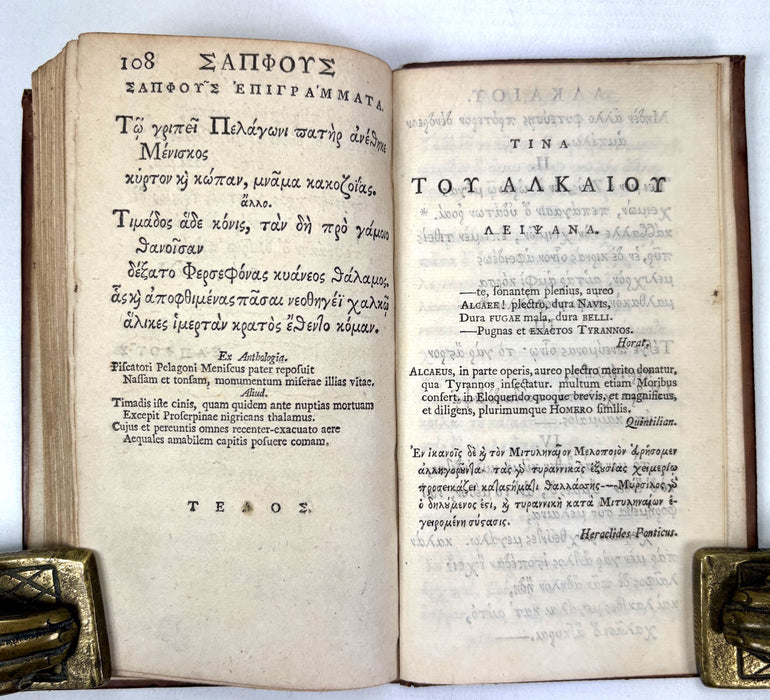 108 ΣΑΠΦΟΥΣ
ΣΑΠΦΟΥ͂Σ ἘΠΙΓΡΆΜΜΑΤΑ.
Τῷ γριπεῖ Πελάγωνι πατὴρ ἀνέθηκε
Μένισκος
κύρτον κ̀ κώπαν, μνᾶμα κακοζοΐας.
ἄλλο.
Τιμάδος ἅδε κόνις, τὰν δὴ πρὸ γάμοιο
θανοῖσαν
δέξατο Φερσεφόνας κυάνεος θάλαμος,
ἇς κ̀ ἀποφθιμένας πᾶσαι νεοθηγέϊ χαλκῷ
ἅλικες ἱμερτὰν κρατὸς ἔθεντο κόμαν.
Ex Anthologia.
Piscatori Pelagoni Meniscus pater reposuit
Nassam et tonsam, monumentum miserae illias vitae,
Aliud.
Timadis iste cinis, quam quidem ante nuptias mortuam
Excepit Proserpinae nigricans thalamus.
Cujus et pereuntis omnes recenter-exacuato aere
Aequales amabilem capitis posuere comam,
ΤΕΛΟΣ.
ΤΙΝΑ
ΤΟΥ ΑΛΚΑΙΟΥ
ΛΕΙΨΑΝΑ.
——te, sonantem plenius, aureo
ALCAEE! plectro, dura NAVIS,
Dura FUGAE mala, dura BELLI.
—Pugnas et EXACTOS TYRANNOS.
Horat,
ALCAEUS, in parte operis, aureo plectro merito donatur,
qua Tyrannos insectatur. multum etiam Moribus
confert. in Eloquendo quoque brevis, et magnificus,
et diligens, plurimumque HOMERO similis.
Quintilian.
Ἐν ἱκανοῖς δὲ κ̀ τὸν Μιτυληναῖον Μελοποιὸν εὑρήσομεν
ἀλληγορῦντα. τὰς γδ τυραννικὰς ἐξυσίας χειμερίῳ
προσεικάζει καταστήματι θαλάσσης——Μύρσιλος γδ
ὁ δηλύμενος ἐστι, κ̀ τυραννικὴ κατὰ Μιτυληναίων ἐ-
γειρομένη σύστασις.
Heraclides Ponticus.